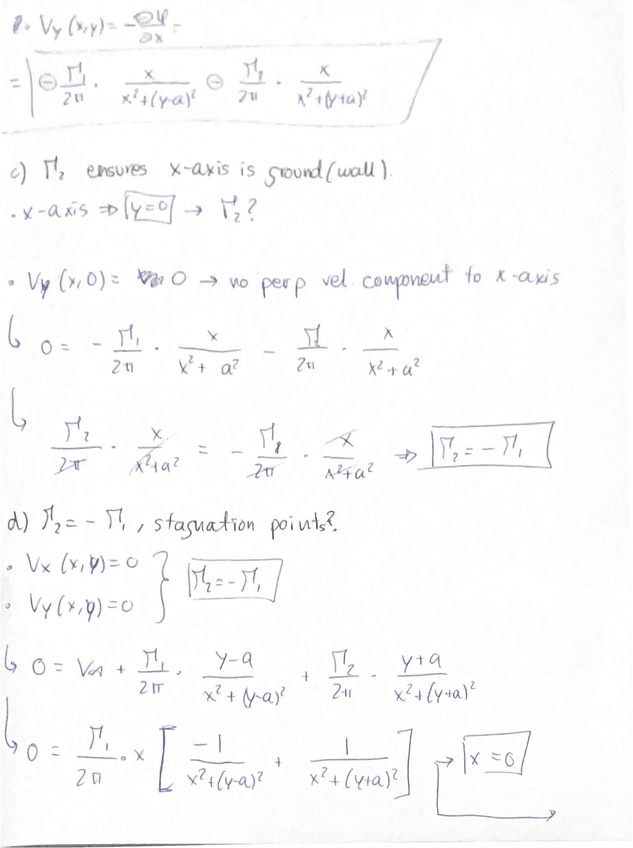 • Vy (x,y) = -∂Ψ/∂x =
= ⊖ Γ1/2π · x/x²+(y-a)² ⊖ Γ2/2π · x/x²+(y+a)²
c) Γ2 ensures x-axis is ground (wall).
• x-axis ⇒ y=0 → Γ2?
• Vy (x,0) = 0 → no perp vel. component to x-axis
↳ 0 = - Γ1/2π · x/x²+a² - Γ/2π · x/x²+a²
↳ Γ2/2π · x/x²+a² = - Γ1/2π · x/x²+a² ⇒ Γ2 = - Γ1
d) Γ2 = - Γ1, stagnation points?
• Vx (x,y) = 0 } Γ2 = - Γ1
• Vy (x,y) = 0
↳ 0 = V∞ + Γ1/2π · y-a/x²+(y-a)² + Γ2/2π · y+a/x²+(y+a)²
↳ 0 = Γ1/2π · x [ -1/x²+(y-a)² + 1/x²+(y+a)² ] → x = 0